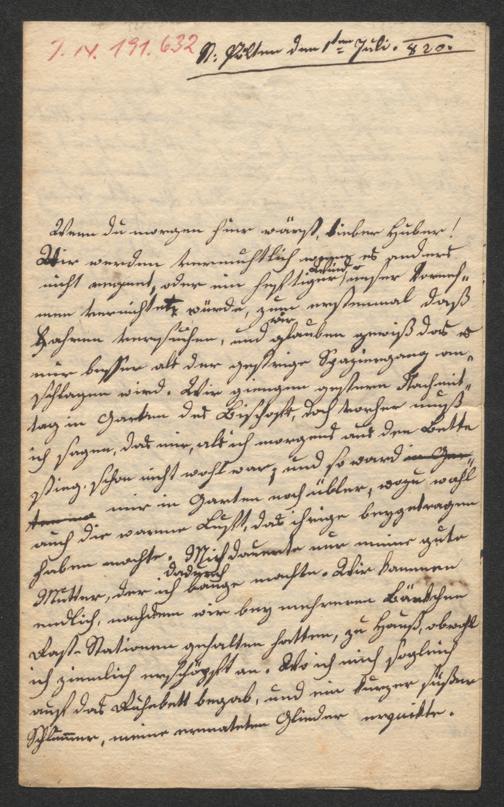 I. N. 191.632
St: Pölten den 1ten Juli. 820.
Wenn du morgen hier wärst, lieber Huber!
Wir werden vermuthlich wenn es anders
nicht regnet, oder ein heftiger Wind unser Vorneh-
men vernichten würde, zum erstenmal das
Fahren versuchen, und wir glauben gewiß das es
mir besser als der gestrige Spaziergang an-
schlagen wird. Wir giengen gestern Nachmit-
tag in Garten des Bischofs, doch vorher muß
ich sagen, das mir, als ich morgens aus den Bette
stieg, schon nicht wohl war, und so ward
mir in Garten noch übler, wozu wohl
auch die warme Luft, das ihrige beygetragen
haben mochte. Mich dauerte nur meine gute
Mutter, der ich dadurch bange machte. Wir kammen
endlich, nachdem wir bey mehreren Bänkchen
Rast-Stationen gehalten hatten, zu Hauß, obwohl
ich ziemlich erschöpft an. Wo ich mich sogleich
auf das Ruhebett begab, und ein kurzer süßer
Schlummer, meine ermateten Glieder erquikte.